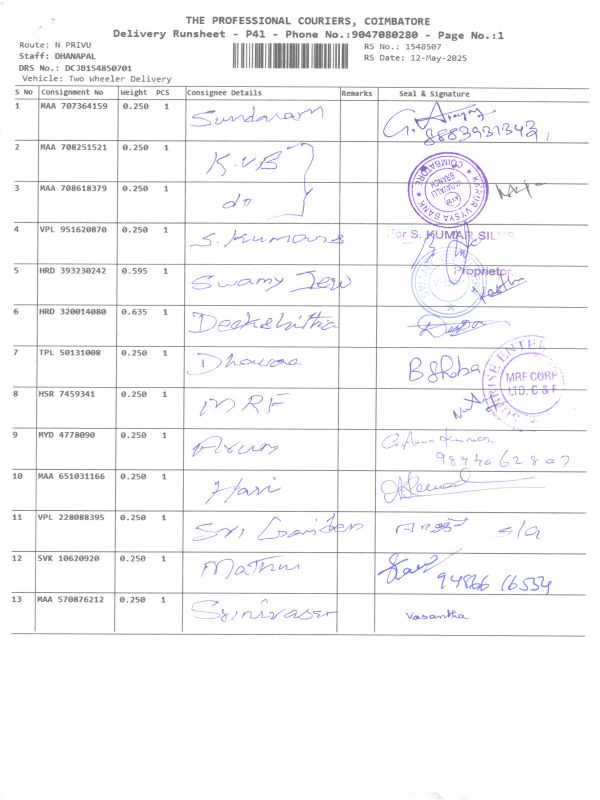 THE PROFESSIONAL COURIERS, COIMBATORE
Delivery Runsheet - P41 - Phone No.:9047080280 - Page No.:1
Route: N PRIVU
RS No.: 1548507
Staff: DHANAPAL
RS Date: 12-May-2025
DRS No.: DCJB154850701
Vehicle: Two Wheeler Delivery
S No Consignment No Weight PCS Consignee Details Remarks Seal & Signature
1 MAA 707364159 0.250 1 Sundaram
2 MAA 708251521 0.250 1 K.V.B
3 MAA 708618379 0.250 1 do
KARUR VYSYA BANK COIMBATORE
4 VPL 951620870 0.250 1 S. Kumars For S. KUMAR SILKS
Proprietor
5 HRD 393230242 0.595 1 Swamy Jew
6 HRD 320014080 0.635 1 Deekshitha
7 TPL 50131008 0.250 1 B
8 HSR 7459341 0.250 1 MRF MRF CORP LTD. C & F
9 MYD 4778090 0.250 1 Arun
10 MAA 651031166 0.250 1 Hari
11 VPL 228088395 0.250 1 Sri
12 SVK 10620920 0.250 1 94866 16534
13 MAA 570876212 0.250 1 Srinivasan Vasantha